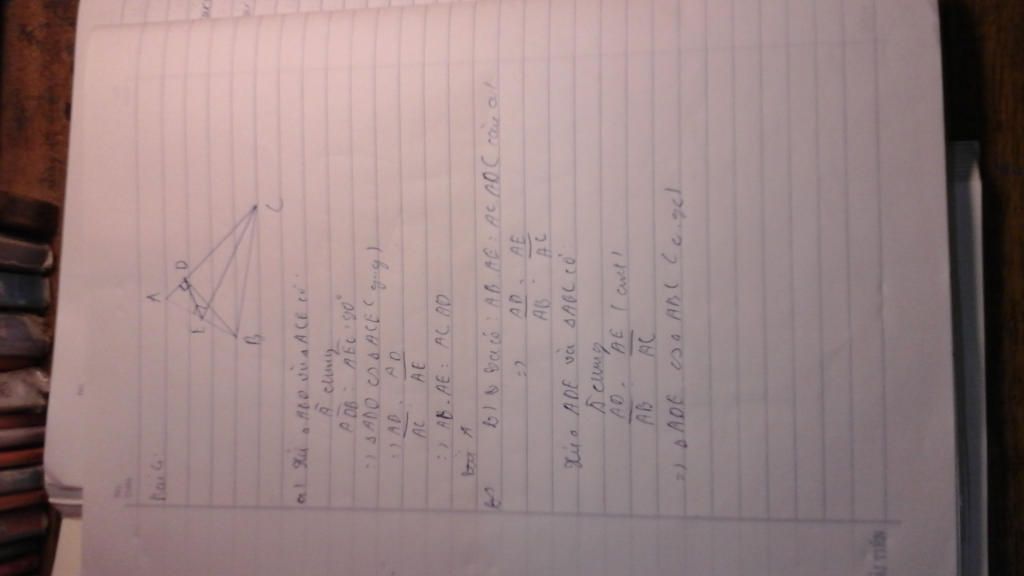 Bài 6:
A
E
D
B
C
a) Xét △ABD và △ACE có
 chung
ADB = AEC = 90°
=) △ABD ∽ △ACE (g.g)
=) AB = AD
AC AE
=) AB.AE = AC.AD
b) ta có : AB.AE = AC.AD (câu a)
=) AD = AE
AB AC
Xét △ADE và △ABC có
 chung
AD = AE (cmt)
AB AC
=) △ADE ∽ △ABC (c.g.c)